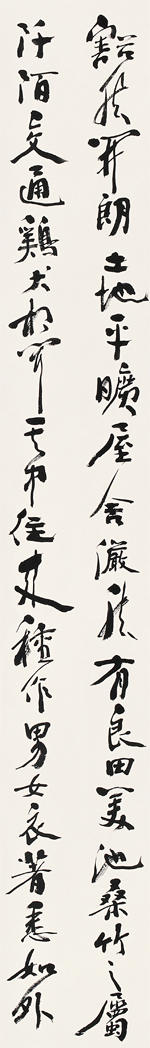 豁然開朗土地平曠屋舍嚴然有良田美池桑竹之屬
阡陌交通鷄犬相聞其中往來種作男女衣著悉如外